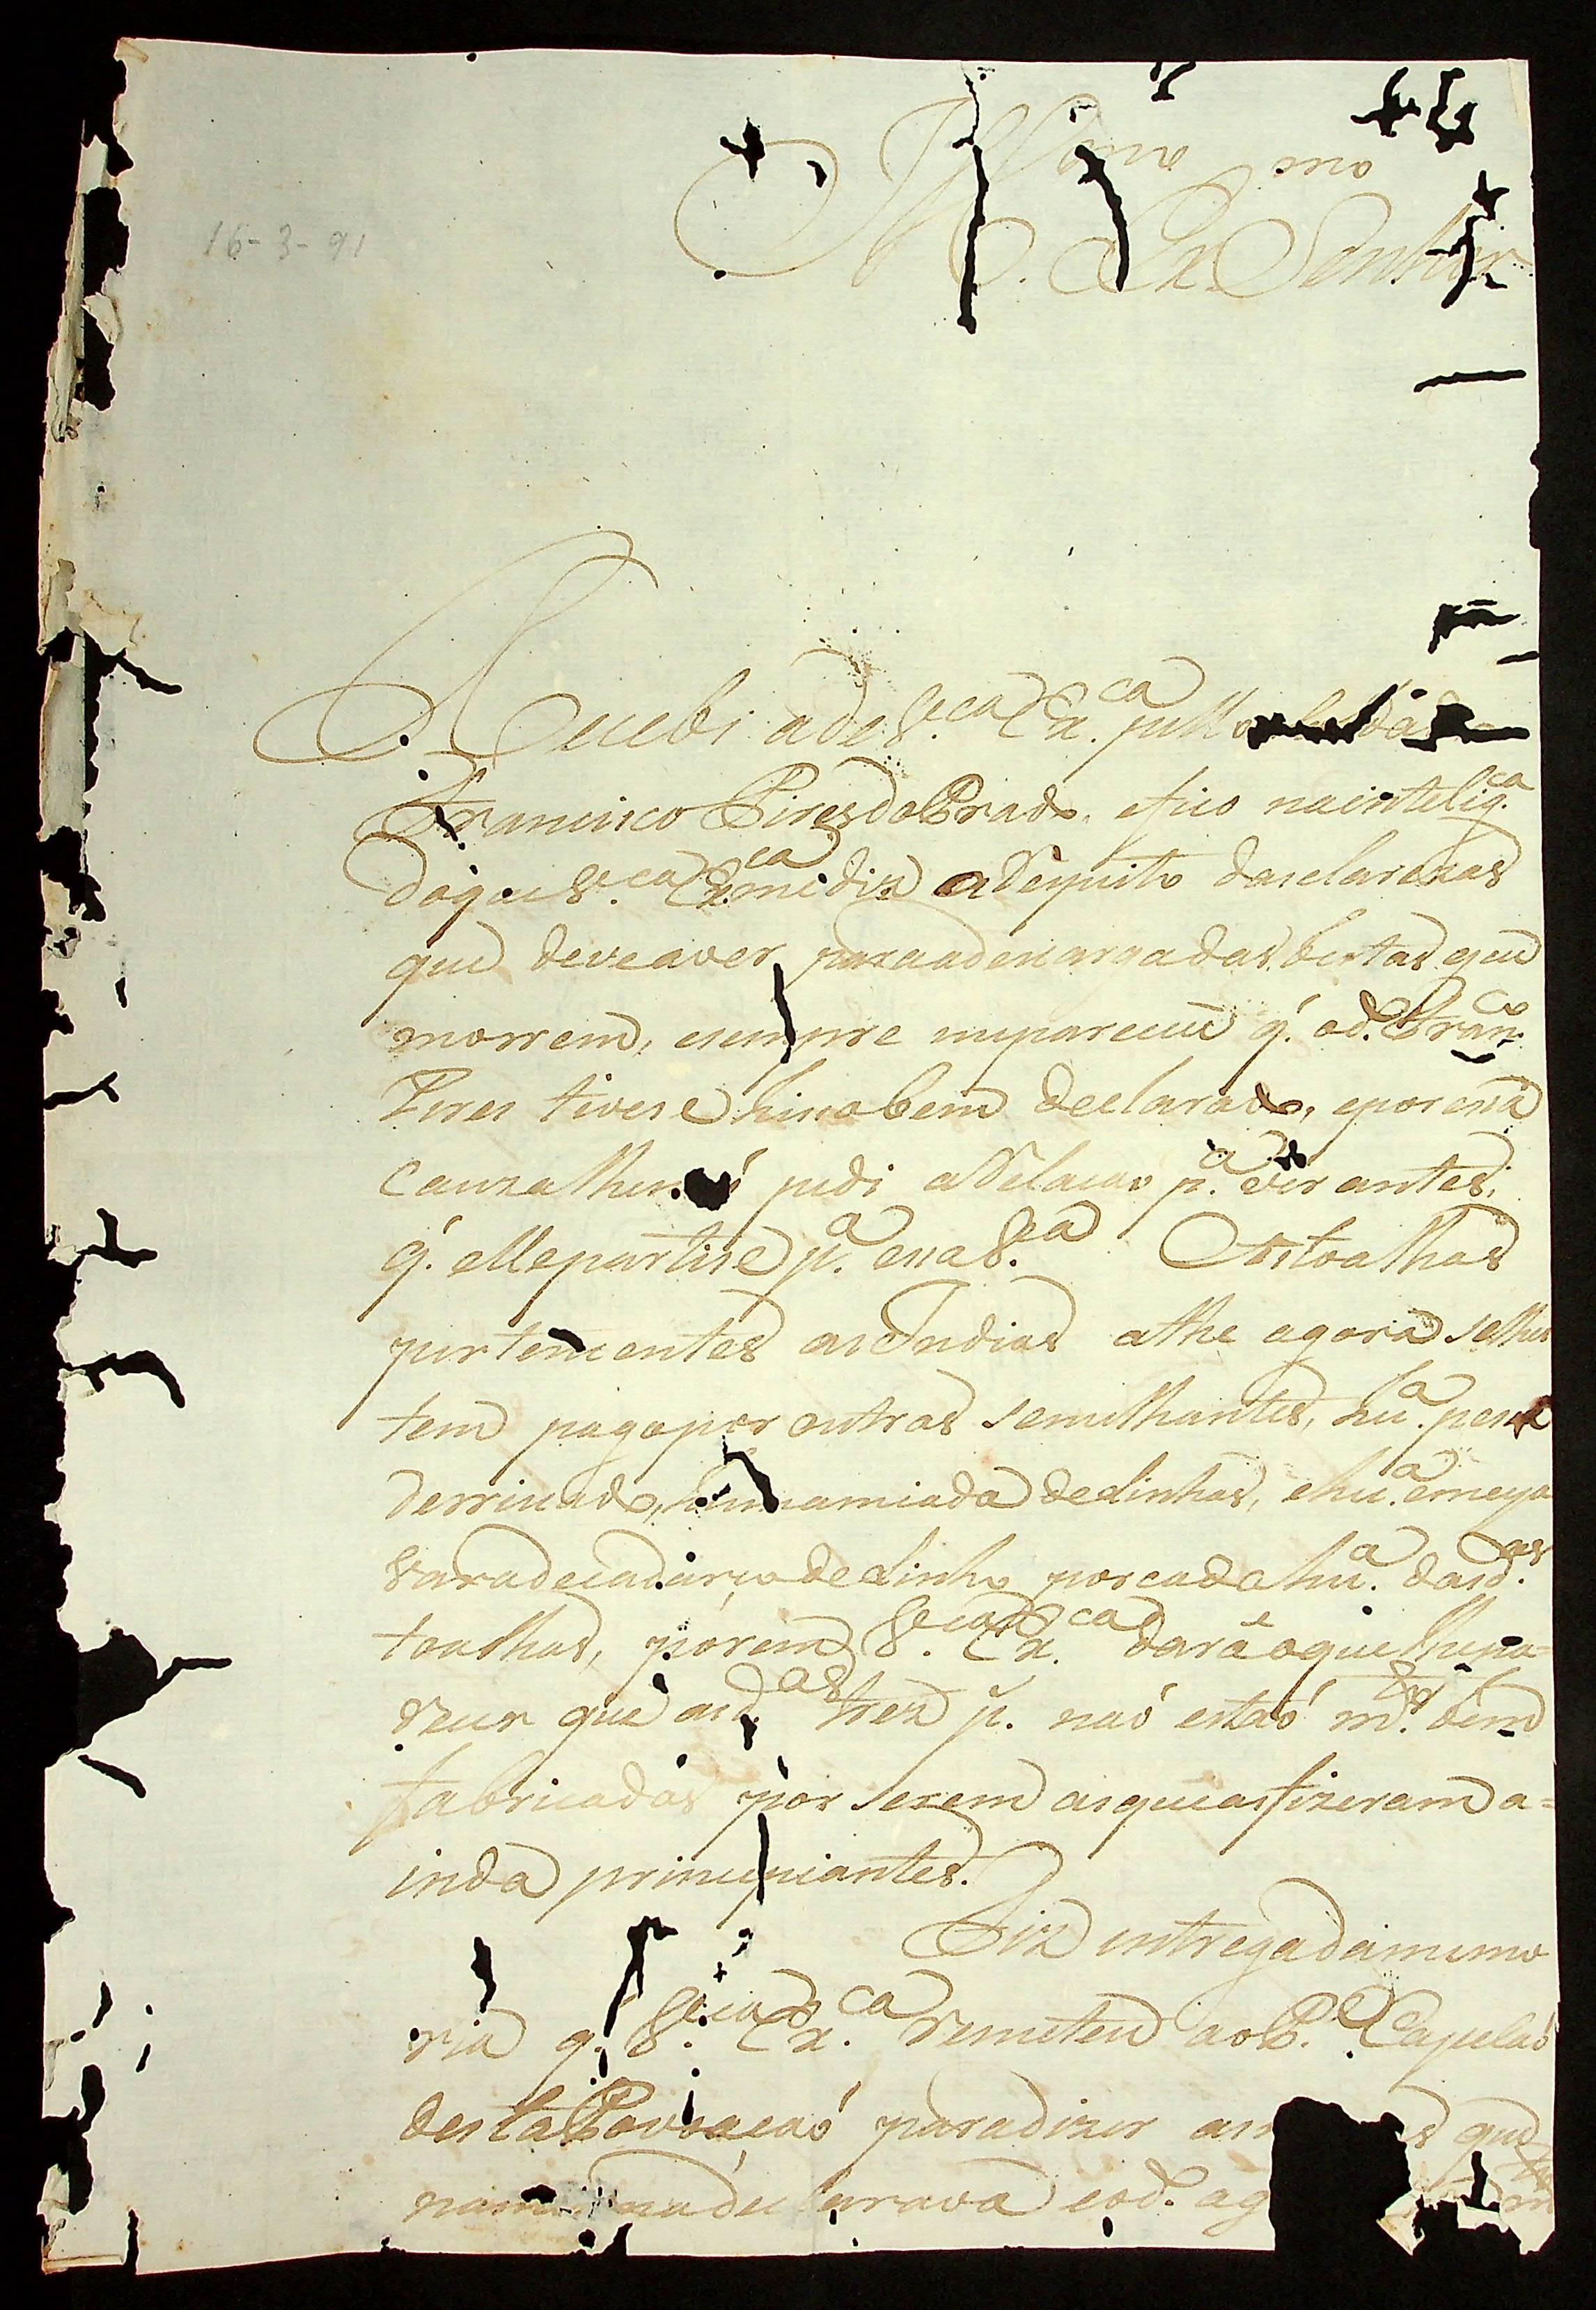 16-3-91
Ill.mo e Ex.mo Senhor
Recebi a de V.ca Ex.ca pello
Francisco Pires do Prado, e fico na intelig.ca
do que V.ca Ex.ca me diz a Respeito das clarezas
que deve aver para a descarga das bestas que
morrem, e sempre me pareceu q. o d. Fran.co
Pires tivese hisso bem declarado, e por essa
cauza lhe pedi a Relacao p.a ver antes
q. elle partise p.a essa V.a As toalhas
pertencentes as Indias athe agora se lhes
tem pago por outras semilhantes, hu.a pesa
de riscado, huma miada de linhas, e hu.a e meya
vara de cadarço de linho por cada hu.a das d.as
toalhas, porem V.ca Ex.ca dará o que lhe pa=
recer que as d.as trez p. naó estaó m.to bem
fabricadas por serem as que as fizeram a=
inda principiantes.
Fiz entrega da memo
ria q. V.ca Ex.ca Remeteu ao P.e Capelaó
desta Povoacaó para dizer as que
declarava e o d. ag